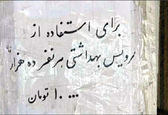 برای استفاده از
سرویس بهداشتی هر نفر ده هزار
۱۰۰۰۰ تومان